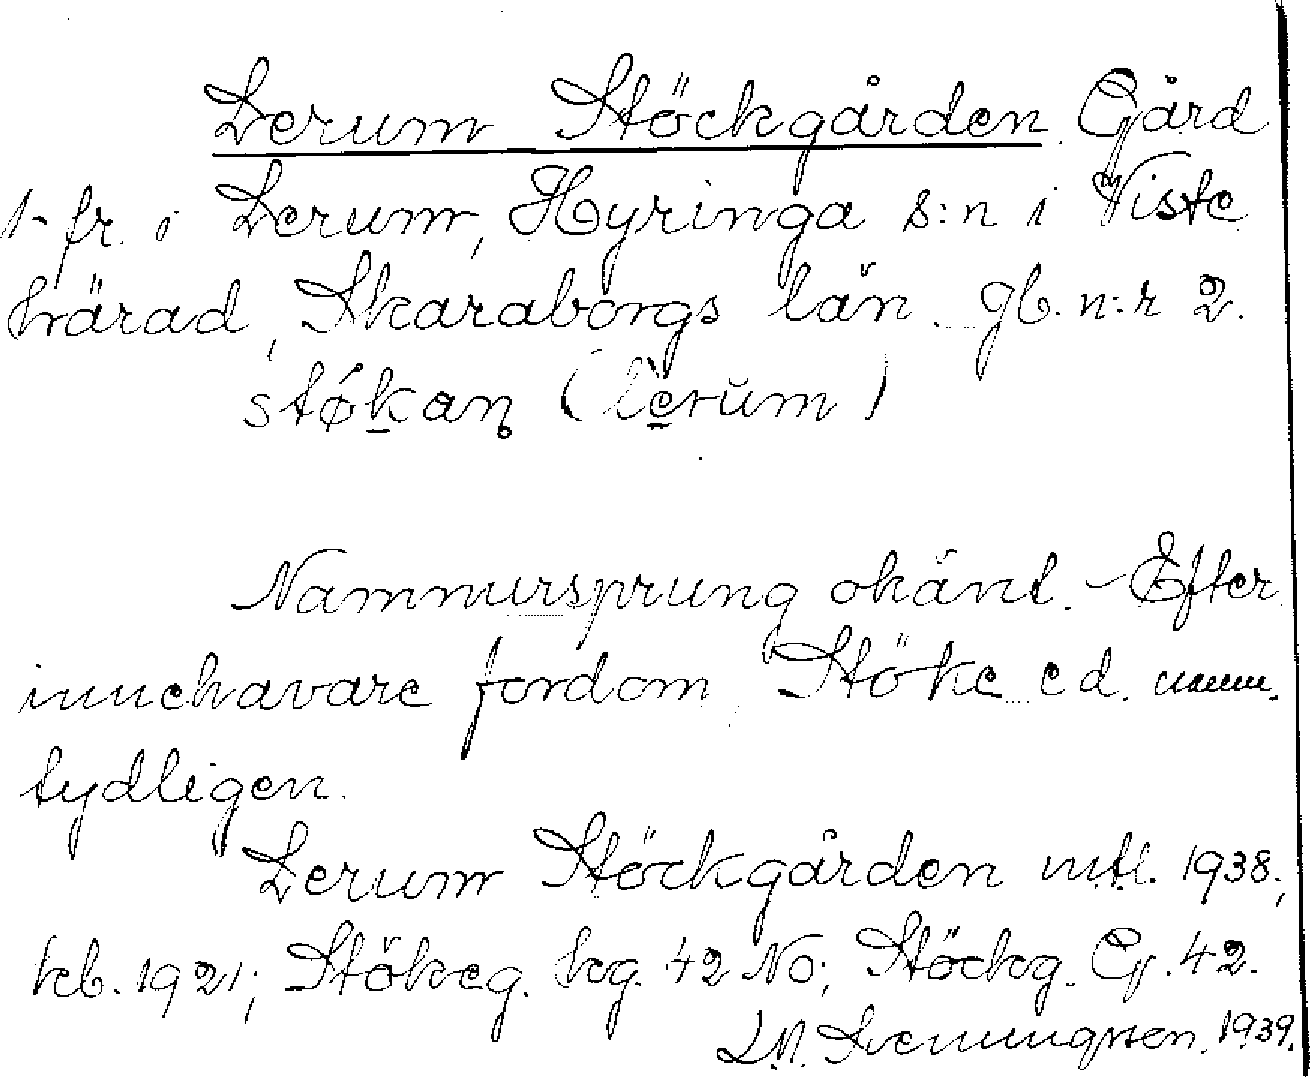 Lerum Stöckgården Gård
1-fr. i Lerum, Hyringa s:n i Viste
härad, Skaraborgs län. gb. n:r 2.
stǿkan̥ (lerum)
Namnursprung okänt. - Efter
innehavare fordom, Stöke e d. namn,
tydligen.
Lerum Stöckgården mtl. 1938;
kb. 1921; Stökeg. hg. 42 No; Stöckg. Cg. 42.
Svenungsson. 1939.